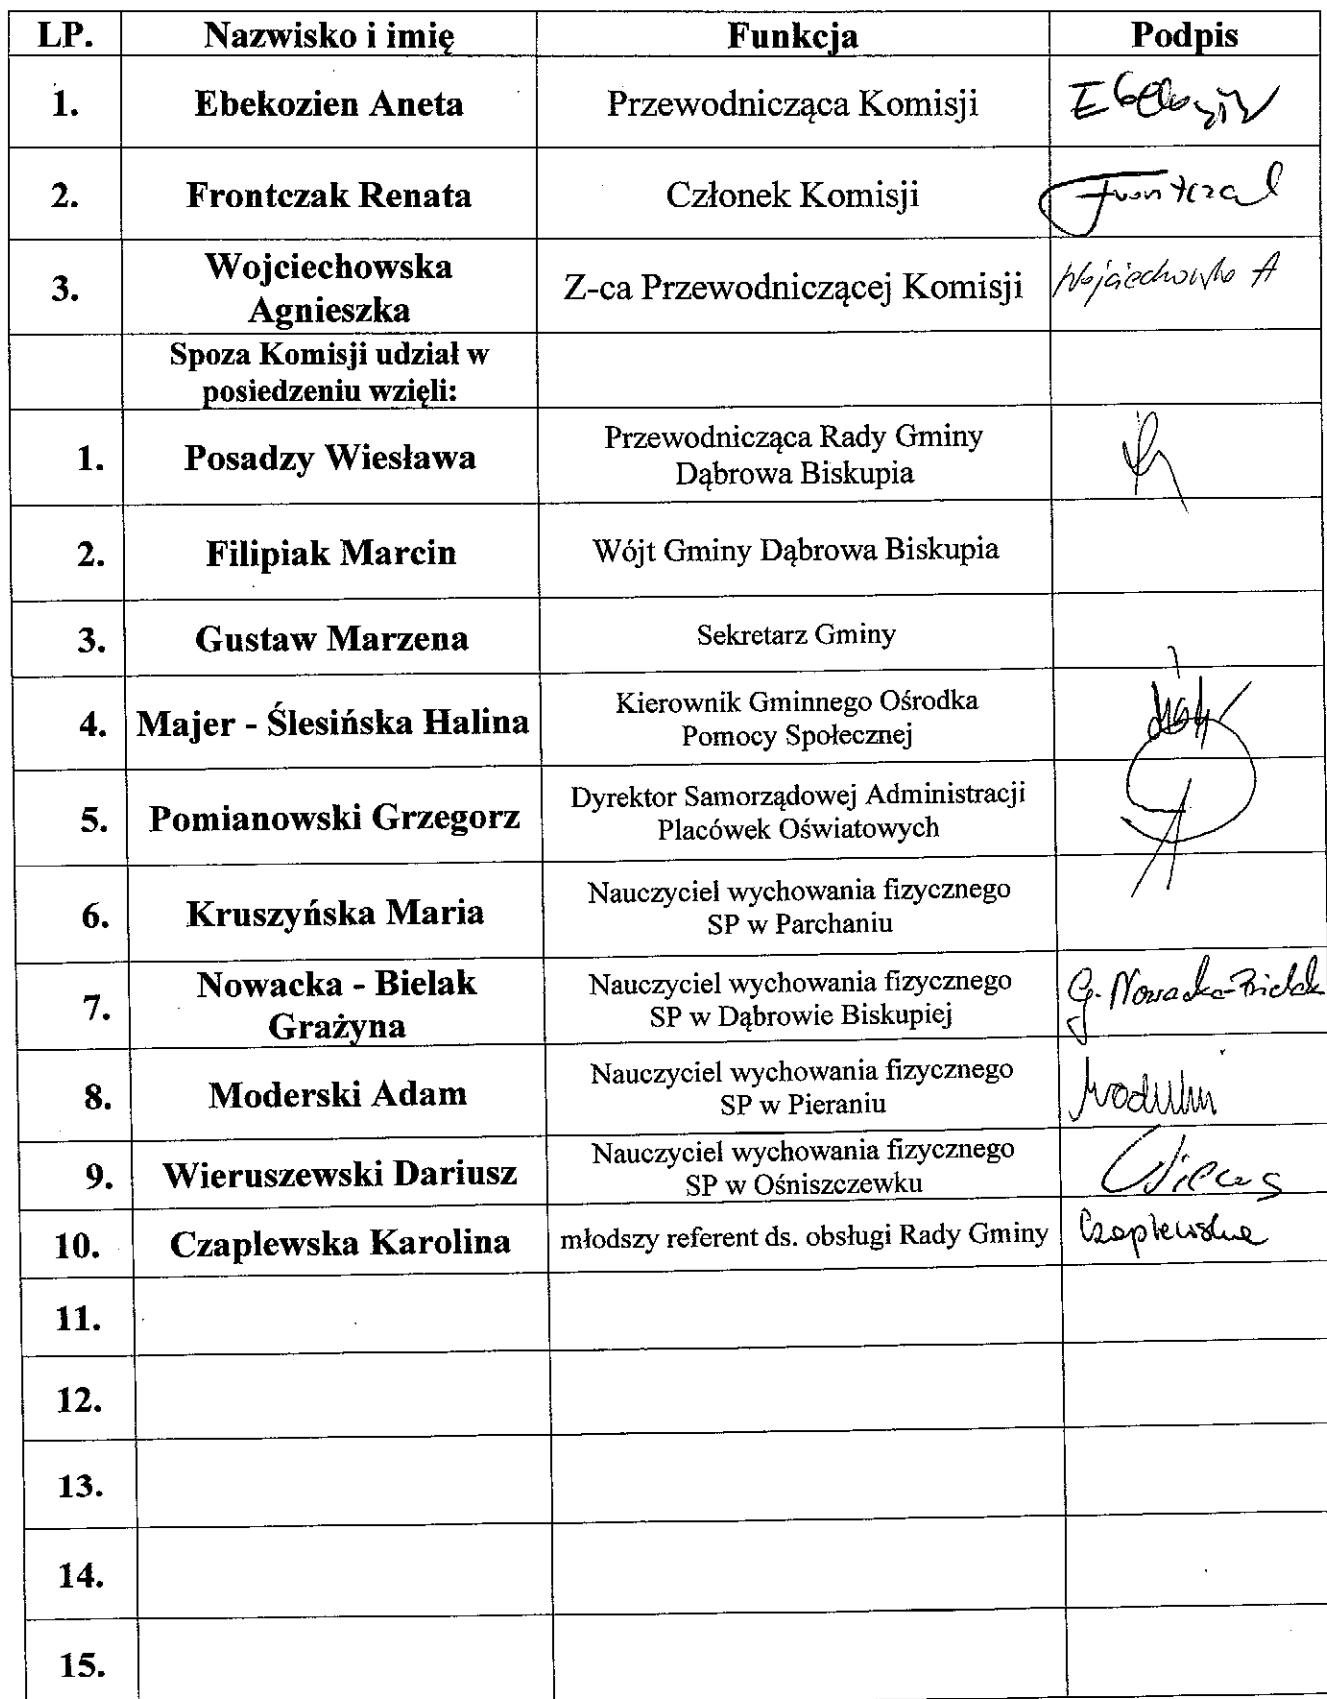 LP. Nazwisko i imię Funkcja Podpis
1. Ebekozien Aneta Przewodnicząca Komisji
2. Frontczak Renata Członek Komisji Frontczak
3. Wojciechowska Agnieszka Z-ca Przewodniczącej Komisji Wojciechowska A
Spoza Komisji udział w
posiedzeniu wzięli:
1. Posadzy Wiesława Przewodnicząca Rady Gminy
Dąbrowa Biskupia
2. Filipiak Marcin Wójt Gminy Dąbrowa Biskupia
3. Gustaw Marzena Sekretarz Gminy
4. Majer - Ślesińska Halina Kierownik Gminnego Ośrodka
Pomocy Społecznej
5. Pomianowski Grzegorz Dyrektor Samorządowej Administracji
Placówek Oświatowych
6. Kruszyńska Maria Nauczyciel wychowania fizycznego
SP w Parchaniu
7. Nowacka - Bielak
Grażyna Nauczyciel wychowania fizycznego
SP w Dąbrowie Biskupiej G. Nowacka-Bielak
8. Moderski Adam Nauczyciel wychowania fizycznego
SP w Pieraniu
9. Wieruszewski Dariusz Nauczyciel wychowania fizycznego
SP w Ośniszczewku
10. Czaplewska Karolina młodszy referent ds. obsługi Rady Gminy Czaplewska
11.
12.
13.
14.
15.